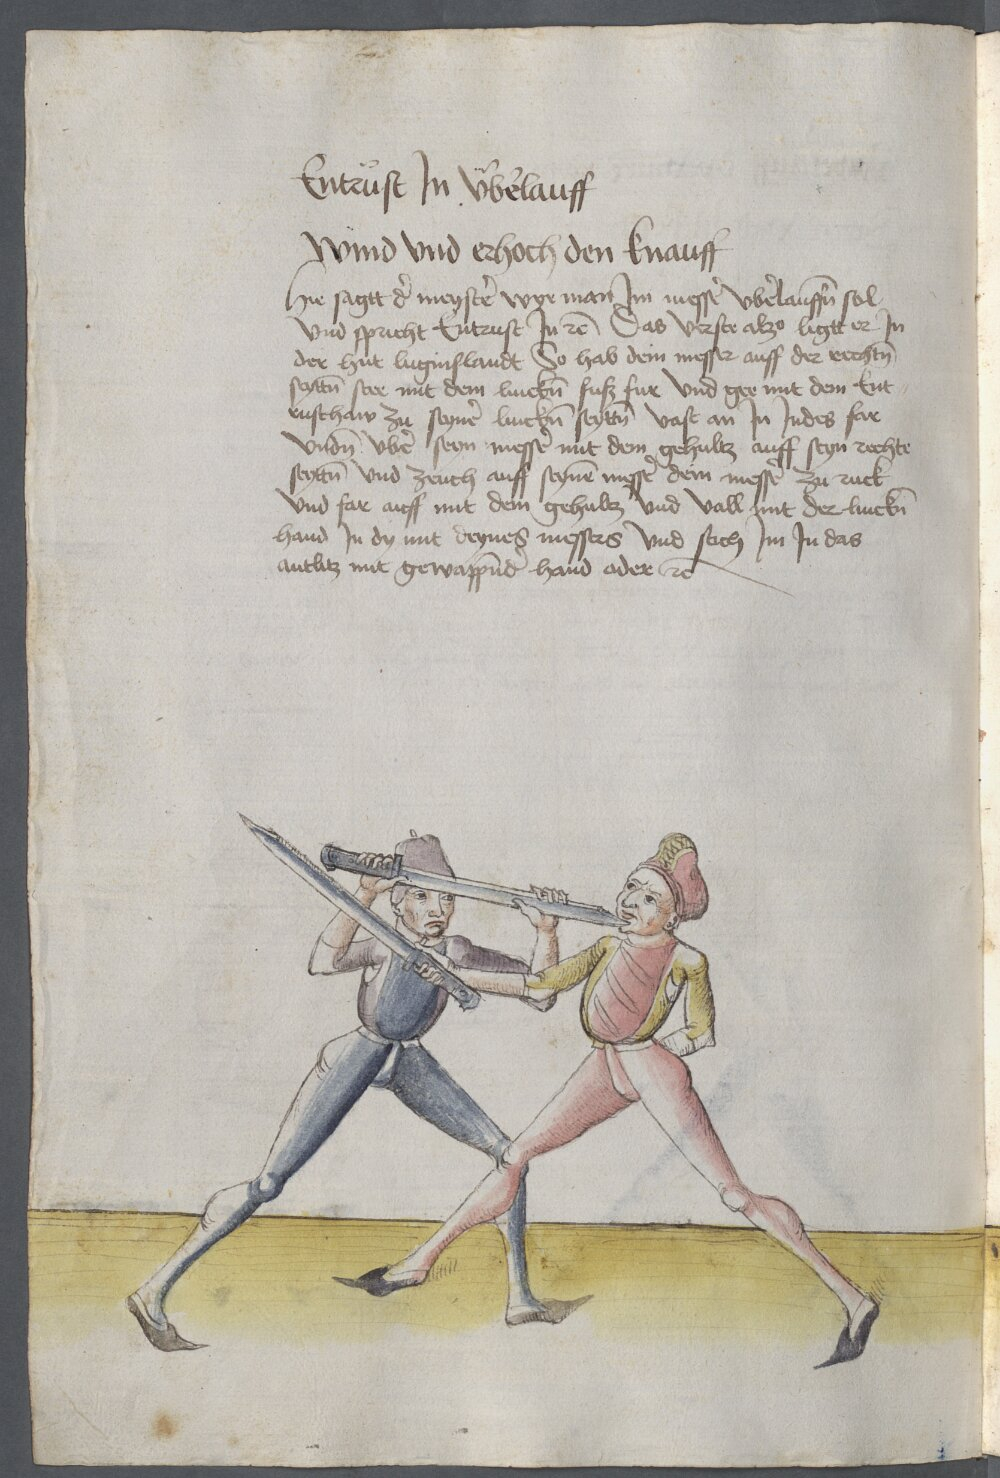 Entrüst In Vberlauff
Wind vnd erhoch den knauff
Hie sagtt d' meyster wye man Im messer vberlauffn sol
vnd spricht Entrust In rc Das verste also ligtt er In
der hut luginslandt So hab dein messer auff der rechtn
seyttn stee mit dem linckn fuß fur vnd gee mit dem Ent-
rusthaw zu seyner linckn seyttn vast an In Indes far
vndn vber seyn messer mit dem gehultz auff seyn rechte
seyttn vnd zeuch auff seynem messer dein messer zu ruck
vnd far auff mit dem gehultz vnd vall mit der linckn
hand In dy mit deynes messers vnd stich Im In das
antlitz mit gewappnd' hand oder rc